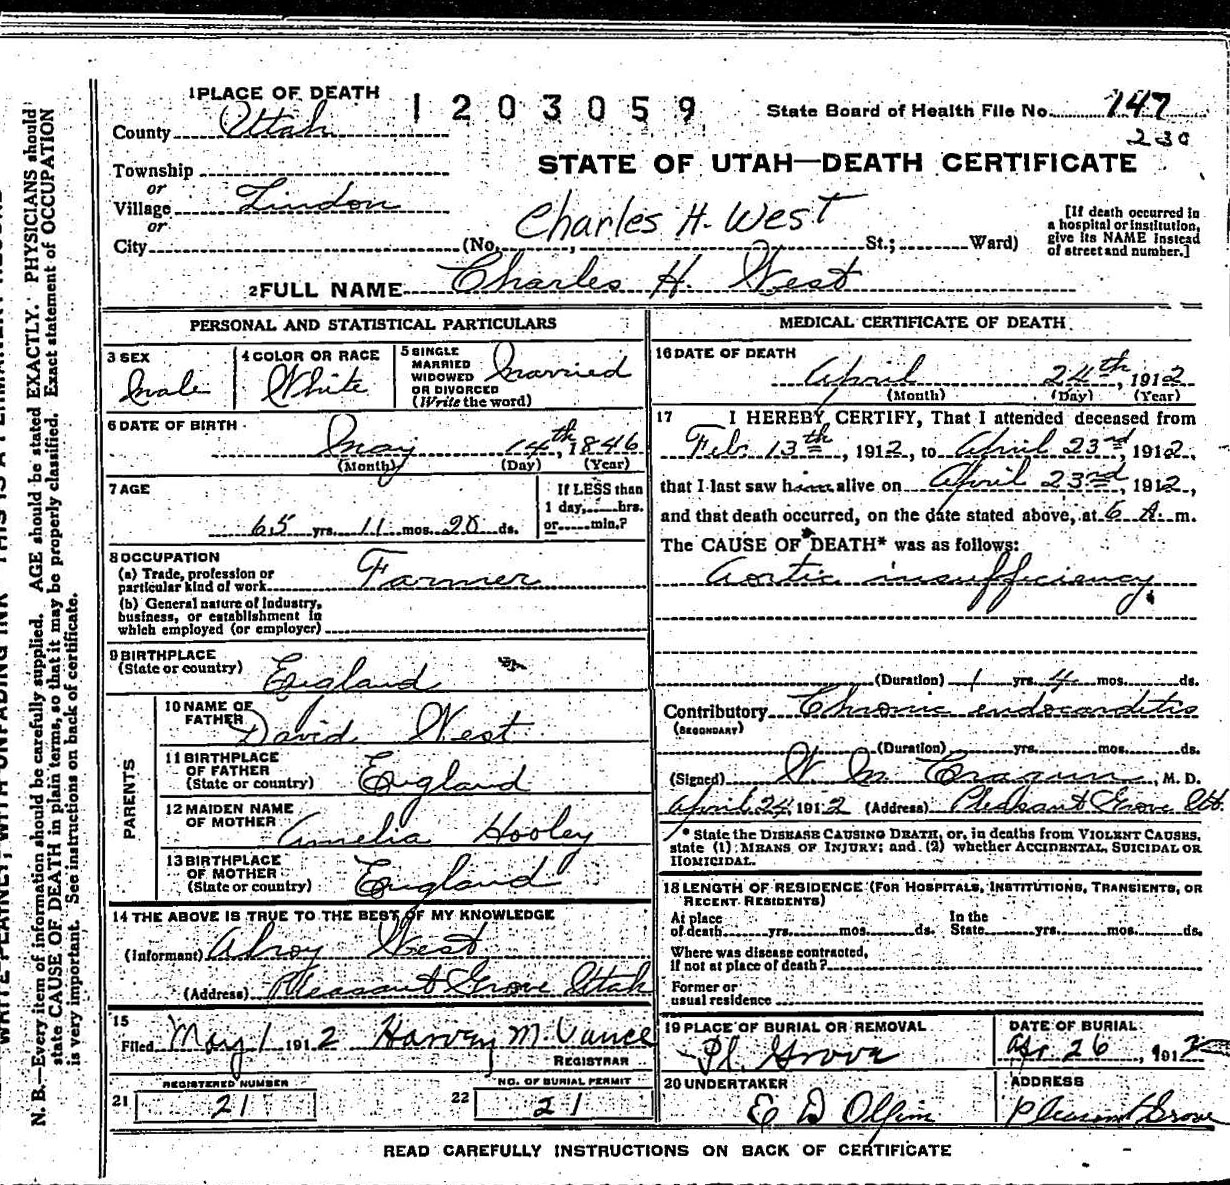 1 PLACE OF DEATH
1203059
State Board of Health File No. 147
230
County Utah
STATE OF UTAH—DEATH CERTIFICATE
Township
or
Village Lindon
or
City
Charles H. West
(No. St.; Ward)
[If death occurred in
a hospital or institution,
give its NAME instead
of street and number.]
2 FULL NAME Charles H. West
PERSONAL AND STATISTICAL PARTICULARS
3 SEX
Male
4 COLOR OR RACE
White
5 SINGLE
MARRIED
WIDOWED
OR DIVORCED
(Write the word)
Married
6 DATE OF BIRTH
May 14th, 1846
(Month) (Day) (Year)
7 AGE
65 yrs. 11 mos. 20 ds.
If LESS than
1 day, hrs.
or min.?
8 OCCUPATION
(a) Trade, profession or
particular kind of work Farmer
(b) General nature of industry,
business, or establishment in
which employed (or employer)
9 BIRTHPLACE
(State or country) England
PARENTS
10 NAME OF
FATHER David West
11 BIRTHPLACE
OF FATHER
(State or country) England
12 MAIDEN NAME
OF MOTHER Amelia Hooley
13 BIRTHPLACE
OF MOTHER
(State or country) England
14 THE ABOVE IS TRUE TO THE BEST OF MY KNOWLEDGE
(Informant) Alroy West
(Address) Pleasant Grove Utah
15
Filed May 1 1912 Harvey M. Vance
REGISTRAR
REGISTERED NUMBER
21 21
NO. OF BURIAL PERMIT
22 21
MEDICAL CERTIFICATE OF DEATH
16 DATE OF DEATH
April 24th, 1912
(Month) (Day) (Year)
17 I HEREBY CERTIFY, That I attended deceased from
Feb. 13th, 1912, to April 23rd, 1912,
that I last saw him alive on April 23rd, 1912,
and that death occurred, on the date stated above, at 6 A. m.
The CAUSE OF DEATH* was as follows:
Aortic insufficiency
(Duration) 1 yrs. 4 mos. ds.
Contributory Chronic endocarditis
(SECONDARY)
(Duration) yrs. mos. ds.
(Signed) W. M. , M. D.
April 24, 1912 (Address) Pleasant Grove Ut.
* State the DISEASE CAUSING DEATH, or, in deaths from VIOLENT CAUSES,
state (1) MEANS OF INJURY; and (2) whether ACCIDENTAL, SUICIDAL OR
HOMICIDAL.
18 LENGTH OF RESIDENCE (FOR HOSPITALS, INSTITUTIONS, TRANSIENTS, OR
RECENT RESIDENTS)
At place
of death yrs. mos. ds.
In the
State yrs. mos. ds.
Where was disease contracted,
If not at place of death?
Former or
usual residence
19 PLACE OF BURIAL OR REMOVAL
Pl. Grove
DATE OF BURIAL
Apr 26, 1912
20 UNDERTAKER
E D Olpin
ADDRESS
Pleasant Grove
READ CAREFULLY INSTRUCTIONS ON BACK OF CERTIFICATE
WRITE PLAINLY, WITH UNFADING INK THIS IS A PERMANENT RECORD
N. B.—Every item of information should be carefully supplied. AGE should be stated EXACTLY. PHYSICIANS should
state CAUSE OF DEATH in plain terms, so that it may be properly classified. Exact statement of OCCUPATION
is very important. See instructions on back of certificate.